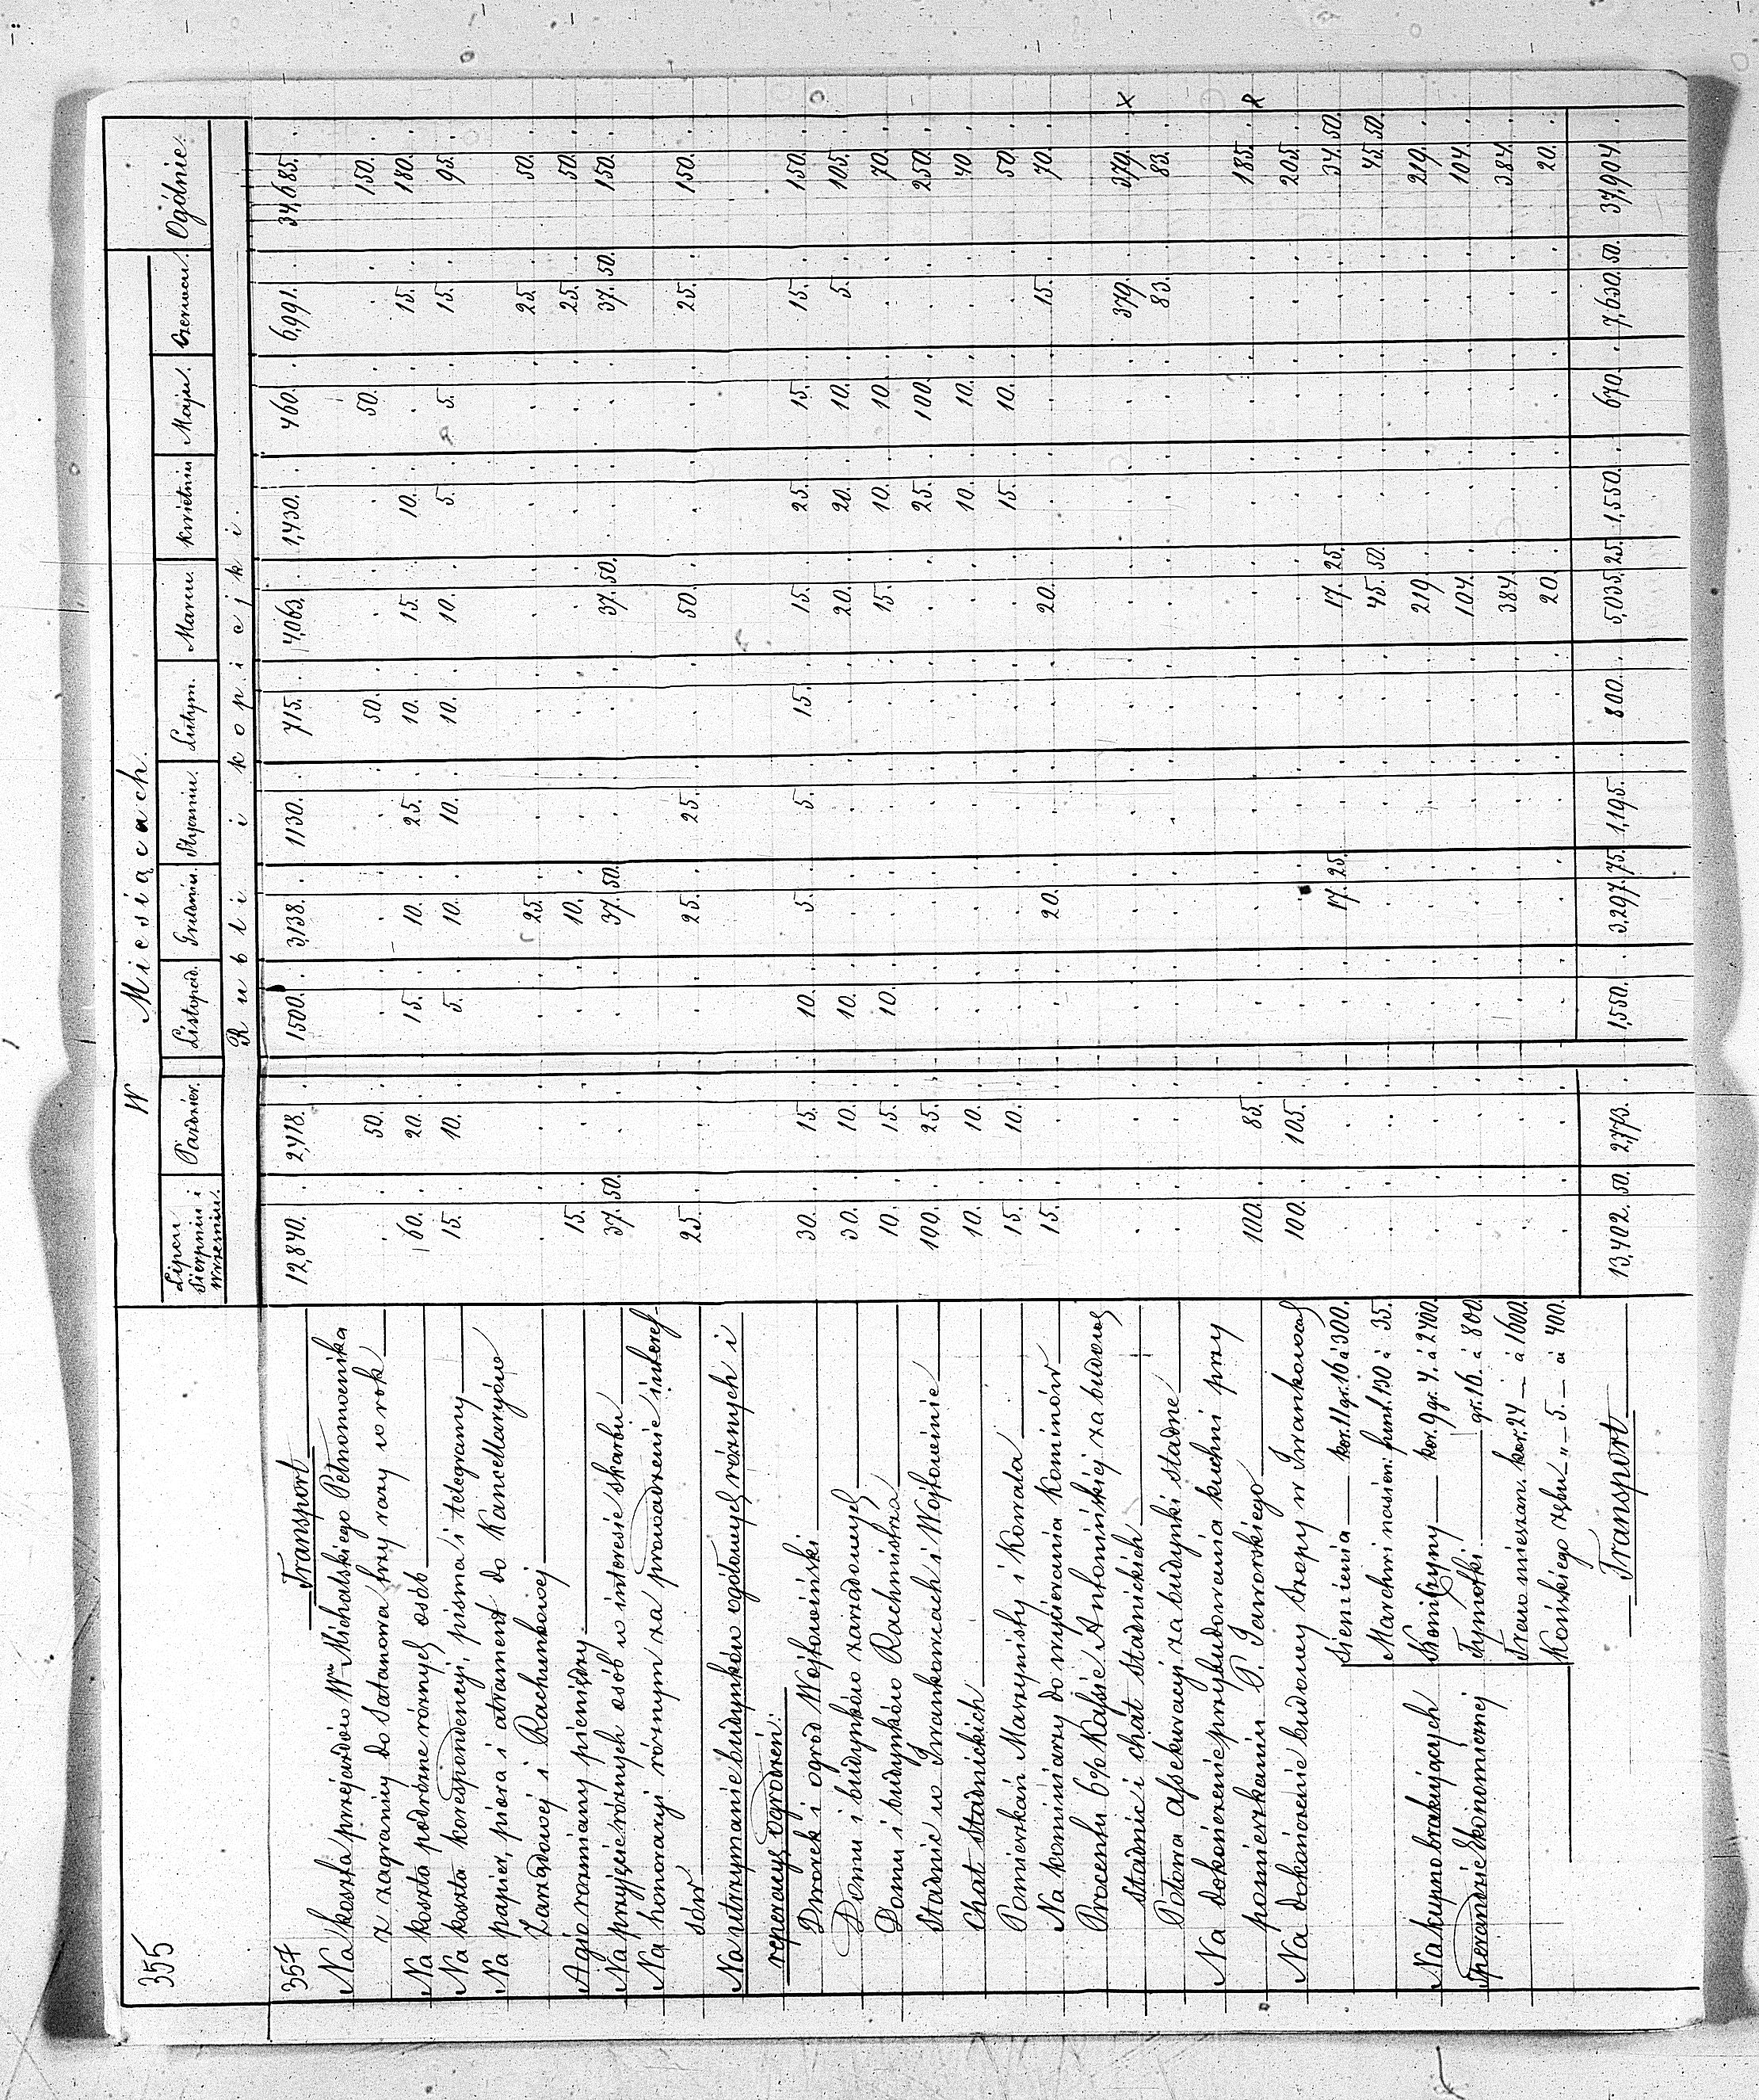 355
W Miesiącach.
Lipcu Sierpniu i Wrześniu. Paździer. Listopad. Grudniu. Styczniu. Lutym. Marcu. Kwietniu Maju. Czerwcu. Ogólnie.
Rubli i kopiejki.
354 Transport 12,840. 2,418. 1500. 3,138. 1130. 715. 4,063. 1,430. 460. 6,991. 34,685.
Na koszta przejazdów Wgo Michalskiego Pełnomocnika
z zagranicy do Satanowa trzy razy w rok 50. 50. 50. 150.
Na koszta podróżne różnych osób 60. 20. 15. 10. 25. 10. 15. 10. 15. 180.
Na koszta korespondencyi, pisma i telegramy 15. 10. 5. 10. 10. 10. 10. 5. 5. 15. 95.
Na papier, pióra i atrament do Kancellaryów
Zarządowej i Rachunkowej 25. 25. 50.
Agio zamiany pieniędzy 15. 10. 25. 50.
Na przyjęcie różnych osób w interesie skarbu 37. 50. 37. 50. 37. 50. 37. 50. 150.
Na honoraryi różnym za prowadzenie interes-
sów 25. 25. 25. 50. 25. 150.
Na utrzymanie budynków ogółowych różnych i
reparacye ogrodzeń:
Dworek i ogród Wojtowiński 30. 15. 10. 5. 5. 15. 15. 25. 15. 15. 150.
Domu i budynków zarządowych 30. 10. 10. 20. 20. 10. 5. 105.
Domu i budynków Rachmistrza 10. 15. 10. 15. 10. 10. 70.
Stadnic w Iwankowcach i Wojtowinie 100. 25. 25. 100. 250.
Chat Stadnickich 10. 10. 10. 10. 40.
Pomieszkań Maszynisty i Kowala 15. 10. 15. 10. 50.
Na kominiarzy do wycierania Kominów 15. 20. 20. 15. 70.
Procentu 6% Kassie Antonińskiej za budowę
Stadnic i chat Stadnickich 379. 379. X
Połowa assekuracyi za budynki stadne 83. 83.
Na dokończenie przybudowania kuchni przy
pomieszkaniu P. Jaworskiego 100. 85. 185. R
Na dokończenie budowy szopy w Iwankowcach 100. 105. 205.
Na kupno brakujących
Sienienia kor. 11 gr. 16 à 300. 17. 25. 17. 25. 34. 50.
Marchwi nasien: funt. 130 à 35. 45. 50. 45. 50.
Koniczyny kor. 9 gr. 4. à 2400. 219. 219.
Tymotki gr. 16. à 800. 104. 104.
Traw mieszan. kor. 24 à 1600. 384. 384.
Końskiego zębu " 5. à 400. 20. 20.
Transport 13,402. 50. 2,773. 1,550. 3,297. 75. 1,195. 800. 5,035. 25. 1,550. 670. 7,630. 50. 37,904.